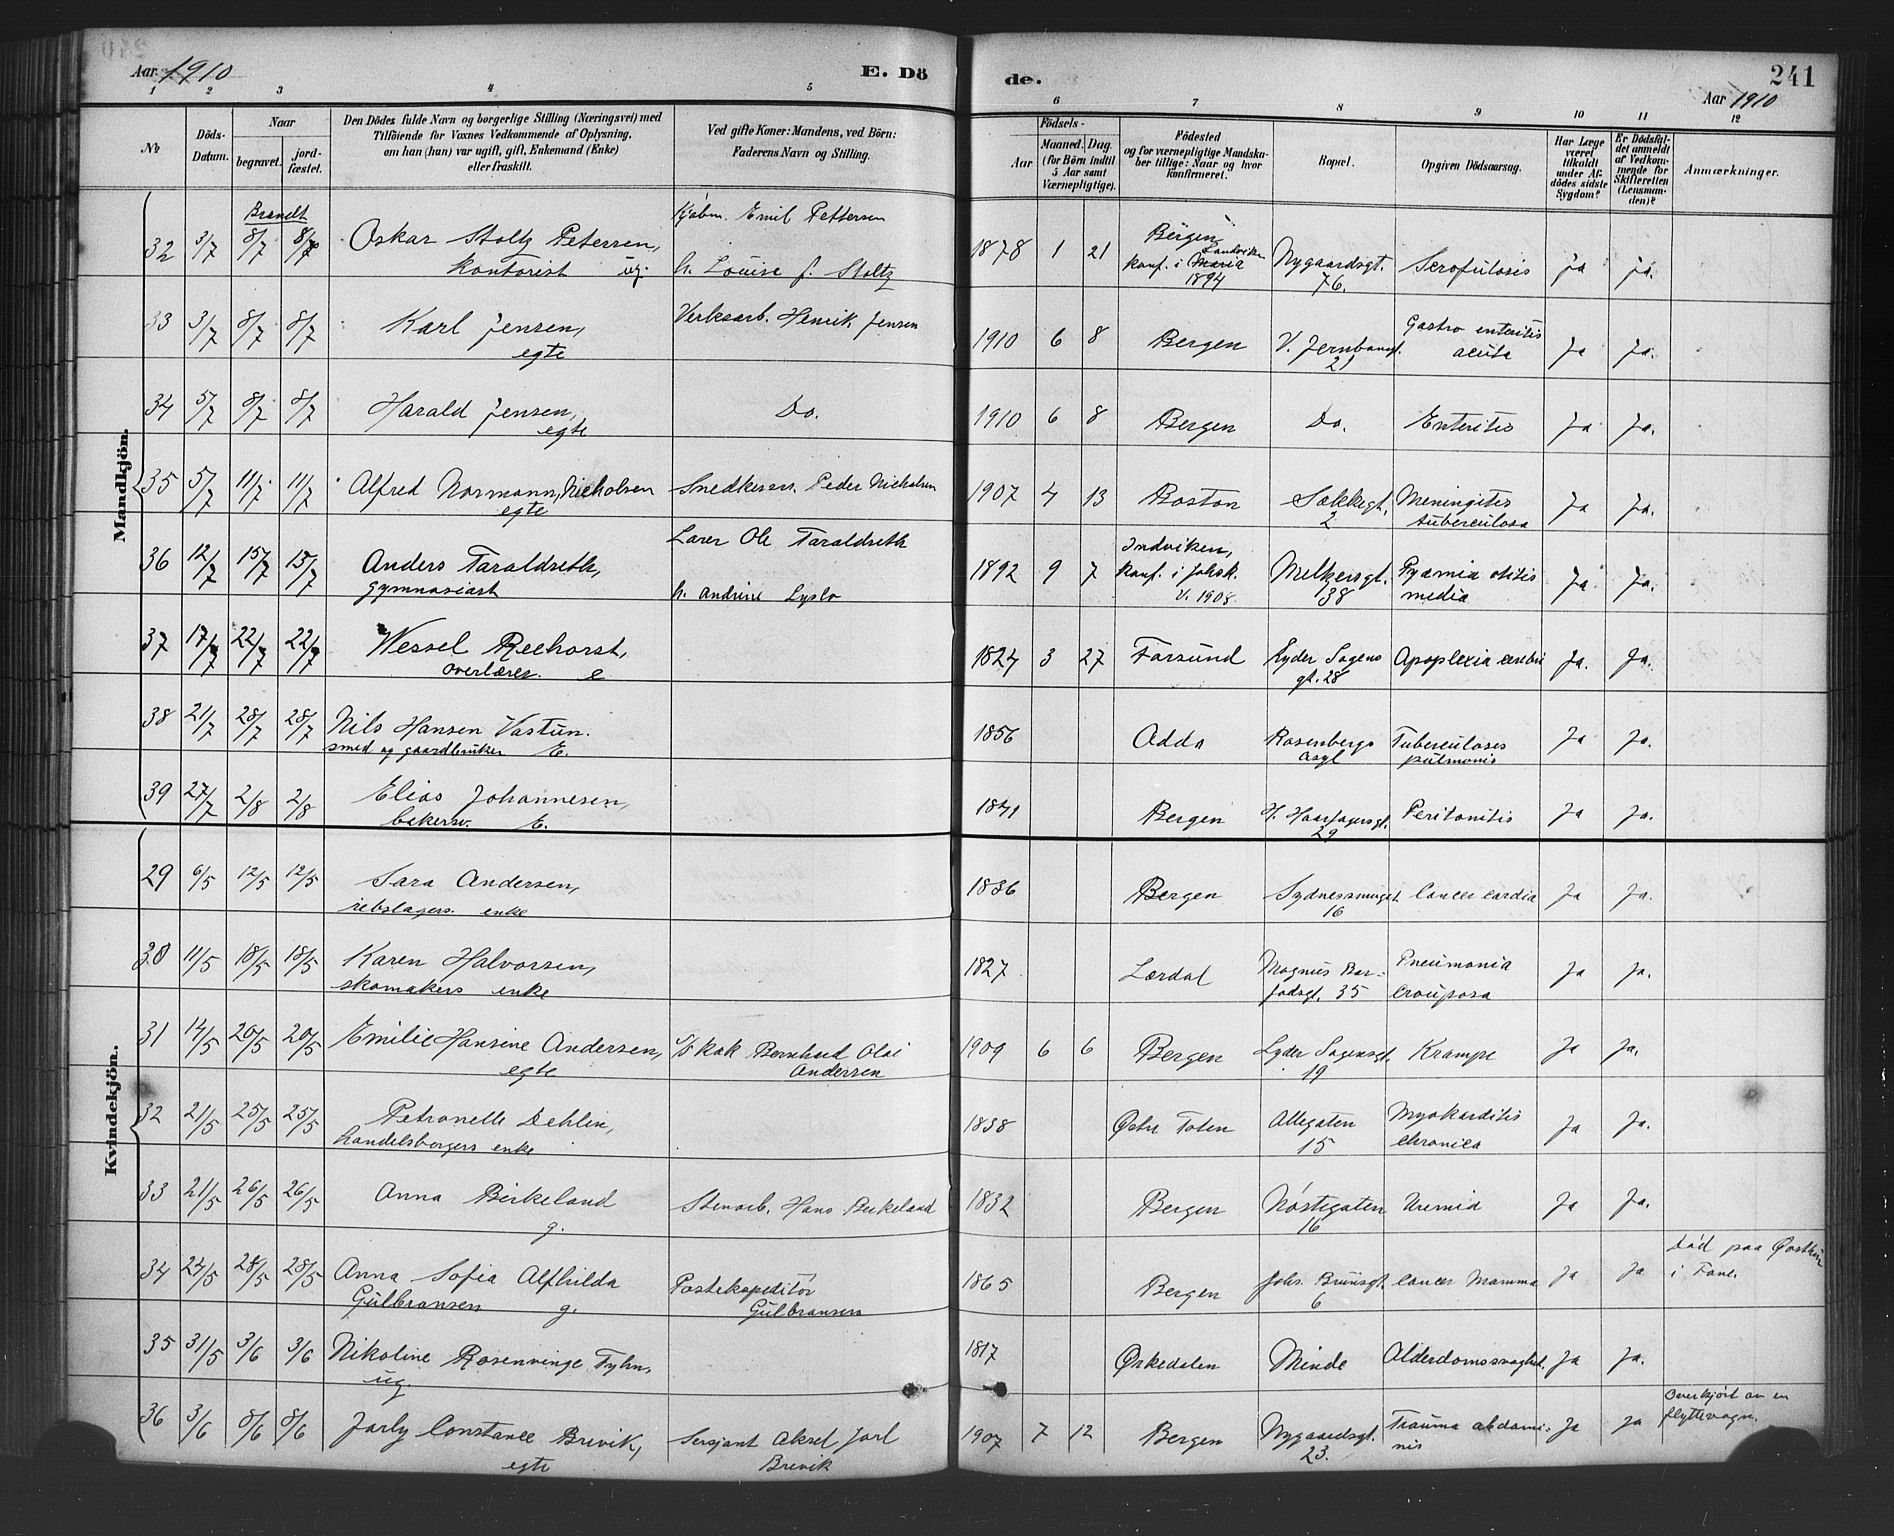 Aar 1910
E. Dö
de.
241
Aar 1910
1 2 3 4 5 6 7 8 9 10 11 12
No
Döds-Datum.
Naar
begravet.
jord-fæstet.
Den Dödes fulde Navn og borgerlige Stilling (Næringsvei) med
Tilföiende for Voxnes Vedkommende af Oplysning,
om han (hun) var ugift, gift, Enkemand (Enke)
eller fraskilt.
Ved gifte Koner: Mandens, ved Börn:
Faderens Navn og Stilling.
Födsels-
Aar
Maaned. Dag.
(for Börn indtil
5 Aar samt
Værnepligtige).
Födested
og for værnepligtige Mandska-
ber tillige: Naar og hvor
konfirmeret.
Bopæl.
Opgiven Dödsaarsag.
Har Læge
været
tilkaldt
under Af-
dödes sidste
Sygdom?
Er Dödsfal-
det anmeldt
af Vedkom-
mende for
Skifteretten
(Lensman-
den)?
Anmærkninger.
Mandkjön.
Brandt
32 3/7 8/7 8/7 Oskar Stoltz Petersen, kontorist ug. Kjøbm. Emil Pettersen h. Louise f. Stoltz 1878 1 21 Bergen konf. i Maria Sandviken 1894 Nygaardsgt. 76. Scrofulosis ja ja.
33 3/7 8/7 8/7 Karl Jensen, egte Verksarb. Henrik Jensen 1910 6 8 Bergen V. Jernbanegt. 21 Gastro enteritis acuta Ja Ja.
34 5/7 8/7 8/7 Harald Jensen, egte Do. 1910 6 8 Bergen Do. Enteritis Ja Ja.
35 5/7 11/7 11/7 Alfred Normann Nicholsen egte Snedkersv. Peder Nicholsen 1907 4 13 Boston Sækkegt. 2 Meningitis tuberculosa Ja Ja.
36 12/7 15/7 15/7 Anders Taraldseth, gymnasiast Lærer Ole Taraldseth h. Andrine Lyslo 1892 9 7 Indviken, konf. i Johsk. V. 1908. Melkersgt. 38 Pyæmia otitis media Ja Ja.
37 17/7 22/7 22/7 Wessel Reehorst, overlærer. e 1824 3 27 Farsund Lyder Sagens gt. 28 Apoplexia cerebri Ja. Ja.
38 21/7 28/7 28/7 Nils Hansen Vastun. smed og gaardbruker E. 1856 Odda Rosenbergs asyl Tuberculoses pulmonis Ja Ja.
39 27/7 2/8 2/8 Elias Johannesen, bakersv. E. 1841 Bergen H. Haarfagersgt. 29 Peritonitis Ja Ja.
Kvindekjön.
29 6/5 12/5 12/5 Sara Andersen, rebslagers enke 1836 Bergen Sydnessmuget 16 Cancer cardia Ja Ja.
30 11/5 18/5 18/5 Karen Halvorsen, skomakers enke 1827 Lærdal Magnus Bar-fodsgt. 35 Pneumonia crouposa Ja Ja.
31 14/5 20/5 20/5 Emilie Hansine Andersen, egte Kok Bernhard Olai Andersen 1909 6 6 Bergen Lyder Sagensgt. 19 Krampe Ja Ja.
32 21/5 25/5 25/5 Petronelle Dehlin, handelsborgers enke 1838 Østre Toten Allegaten 15 Myokarditis chronica Ja Ja.
33 21/5 26/5 26/5 Anna Birkeland g. Stenarb. Hans Birkeland 1832 Bergen Nøstegaten 16 Uremia Ja Ja.
34 24/5 28/5 28/5 Anna Sofia Alfhilda Gulbransen g. Postekspeditør Gulbransen 1865 Bergen Johs. Bruusgt. 6 Cancer Mamma Ja Ja Død paa i Fane.
35 31/5 3/6 3/6 Nikoline Rosenvinge Tyhn, ug 1817 Ørkedalen Minde Alderdomssvaghet. Ja Ja.
36 3/6 8/6 8/6 Jarly Constance Brevik, egte Sersjant Aksel Jarl Brevik 1907 7 12 Bergen Nygaardsgt. 23. Trauma abdomi-nis Ja Ja Overkjørt av en flyttevogn.